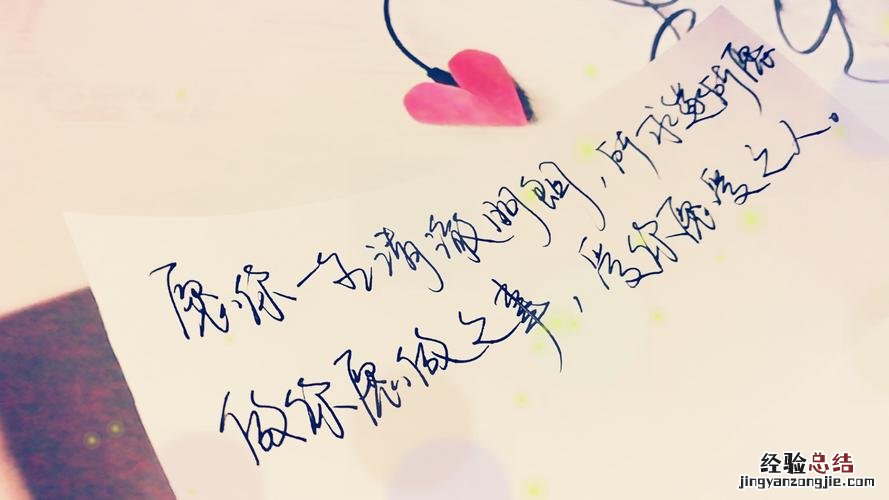 愿你一生清澈明朗，所求遂所愿
做你愿做之事，爱你愿爱之人。
经验总结
jingyanzongjie.com